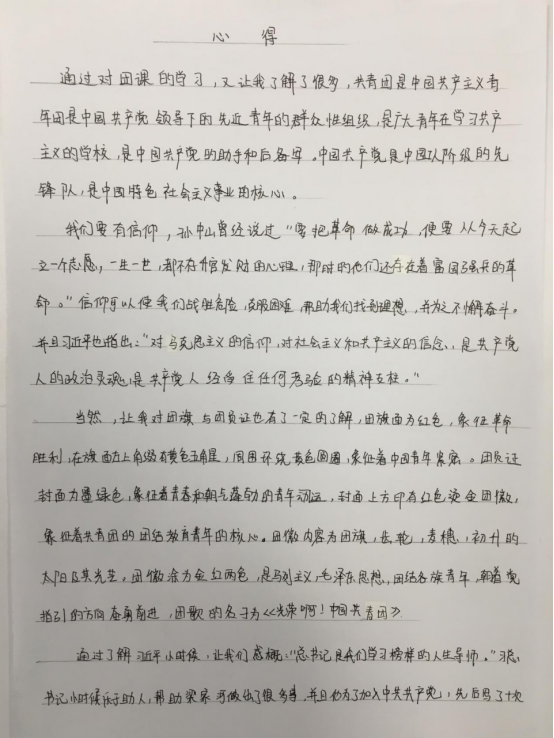 心 得
通过对团课的学习，又让我了解了很多，共青团是中国共产主义青
年团是中国共产党领导下的先近青年的群众性组织，是广大青年在学习共产
主义的学校，是中国共产党的助手和后备军。中国共产党是中国工人阶级的先
锋队，是中国特色社会主义事业的核心。
我们要有信仰，孙中山曾经说过“要把革命做成功，便要从今天起
立一个志愿，一生一世，都不存升官发财的心理，那时的他们还存在着富国强兵的革
命。”信仰可以使我们战胜危险，克服困难，帮助我们找到理想，并为之不懈奋斗。
并且习近平也指出：“对马克思主义的信仰，对社会主义和共产主义的信念，是共产党
人的政治灵魂，是共产党人经受住任何考验的精神支柱。”
当然，让我对团旗与团员证也有了一定的了解，团旗面为红色，象征革命
胜利，在旗面左上角缀有黄色五角星，周围环绕黄色圆圈，象征着中国青年紧密。团员证
封面为墨绿色，象征着青春和朝气蓬勃的青年动运，封面上方印有红色烫金团徽，
象征着共青团的团结教育青年的核心。团徽内容为团旗，齿轮，麦穗，初升的
太阳及其光芒，团徽涂为金红两色，是马列主义，毛泽东思想，团结各族青年，朝着党
指引的方向奋勇前进，团歌的名子为《光荣啊！中国共青团》
通过了解习近平小时候，让我们感概：“总书记是我们学习榜样的人生导师。”习总
书记小时候乐于助人，帮助梁家河做出了很多事，并且他为了加入中共共产党，先后写了十次